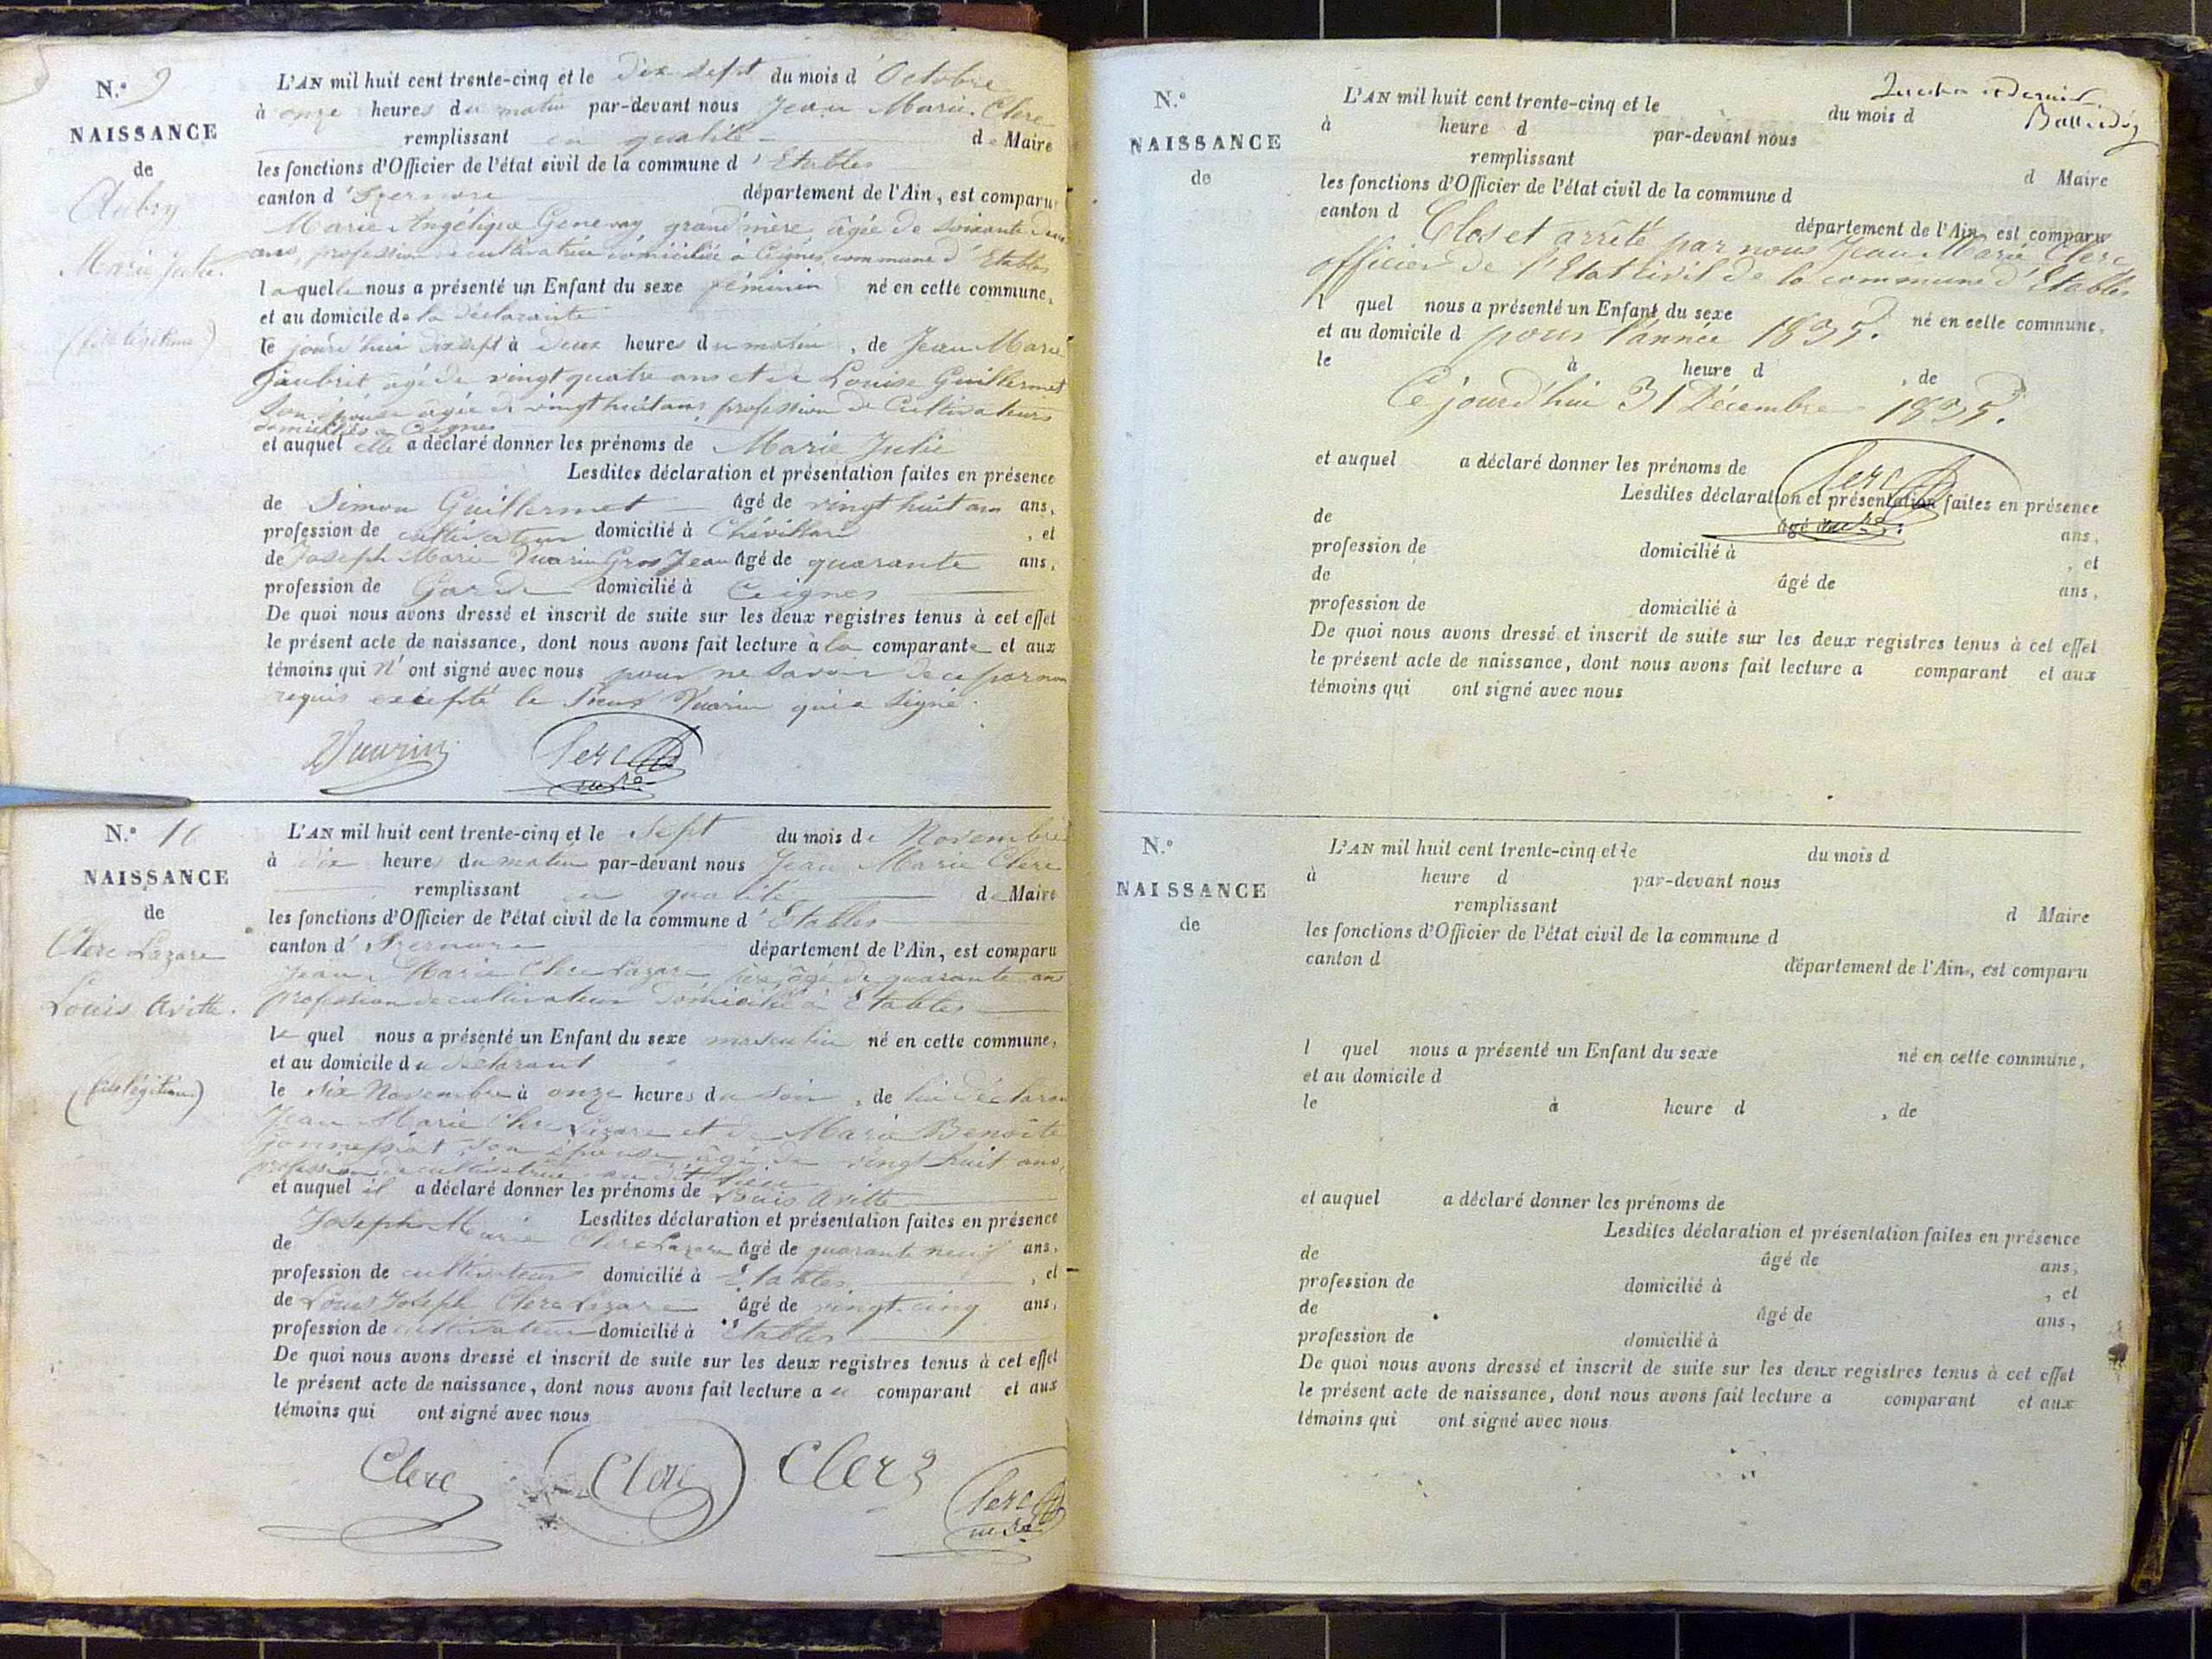 N.° 9
NAISSANCE
de
Aubry
Marie Julie.
L'AN mil huit cent trente-cinq et le dix sept du mois d'Octobre
à onze heures du matin par-devant nous Jean Marie Clerc
remplissant en qualité de Maire
les fonctions d'Officier de l'état civil de la commune d'Etables
canton d' département de l'Ain, est comparu
Marie Angélique Genevay grand'mère âgée de soixante deux
ans, profession de cultivatrice domiciliée à Ceignes commune d'Etables
laquelle nous a présenté un Enfant du sexe féminin né en cette commune,
et au domicile de la déclarante
le jourd'hui dix sept à deux heures du matin, de Jean Marie
Jaubrit âgé de vingt quatre ans et de Louise Guillermet
son épouse âgée de vingt huit ans profession de Cultivateurs
domiciliés à Ceignes
et auquel elle a déclaré donner les prénoms de Marie Julie
Lesdites déclaration et présentation faites en présence
de Simon Guillermet âgé de vingt huit ans ans,
profession de cultivateur domicilié à Chevillard, et
de Joseph Marie Vuarin Gros Jean âgé de quarante ans,
profession de Garde domicilié à Ceignes
De quoi nous avons dressé et inscrit de suite sur les deux registres tenus à cet effet
le présent acte de naissance, dont nous avons fait lecture à la comparante et aux
témoins qui n'ont signé avec nous pour ne savoir de ce par nous
requis excepté le Sieur Vuarin qui a signé.
Vuarin Clerc
N.° 10
NAISSANCE
de
Clerc Lazare
Louis Avitte.
(fils légitime)
L'AN mil huit cent trente-cinq et le Sept du mois de Novembre
à dix heures du matin par-devant nous Jean Marie Clerc
remplissant en qualité de Maire
les fonctions d'Officier de l'état civil de la commune d'Etables
canton d' département de l'Ain, est comparu
Jean Marie Clerc Lazare père, âgé de quarante ans
profession de cultivateur domicilié à Etables
le quel nous a présenté un Enfant du sexe masculin né en cette commune,
et au domicile du déclarant
le six Novembre à onze heures du soir, de lui déclarant
Jean Marie Clerc Lazare et de Marie Benoîte
son épouse âgée de vingt huit ans,
profession de cultivatrice au dit lieu
et auquel il a déclaré donner les prénoms de Louis Avitte
Lesdites déclaration et présentation faites en présence
de Joseph Marie Clerc Lazare âgé de quarante neuf ans,
profession de cultivateur domicilié à Etables, et
de Louis Joseph Clerc Lazare âgé de vingt-cinq ans,
profession de cultivateur domicilié à Etables
De quoi nous avons dressé et inscrit de suite sur les deux registres tenus à cet effet
le présent acte de naissance, dont nous avons fait lecture au comparant et aux
témoins qui ont signé avec nous
Clerc Clerc Clerc Clerc
N.°
NAISSANCE
de
et dernier.
L'AN mil huit cent trente-cinq et le du mois d
à heure d par-devant nous
remplissant d Maire
les fonctions d'Officier de l'état civil de la commune d
canton d département de l'Ain, est comparu
Clos et arrêté par nous Jean Marie Clerc
officier de l'Etat civil de la commune d'Etables
l quel nous a présenté un Enfant du sexe né en cette commune,
et au domicile d pour l'année 1835.
le à heure d , de
Ce jourd'hui 31 Décembre 1835.
et auquel a déclaré donner les prénoms de
Clerc
Lesdites déclaration et présentation faites en présence
de âgé de ans,
profession de domicilié à , et
de âgé de ans,
profession de domicilié à
De quoi nous avons dressé et inscrit de suite sur les deux registres tenus à cet effet
le présent acte de naissance, dont nous avons fait lecture a comparant et aux
témoins qui ont signé avec nous
N.°
NAISSANCE
de
L'AN mil huit cent trente-cinq et le du mois d
à heure d par-devant nous
remplissant d Maire
les fonctions d'Officier de l'état civil de la commune d
canton d département de l'Ain, est comparu
l quel nous a présenté un Enfant du sexe né en cette commune,
et au domicile d
le à heure d , de
et auquel a déclaré donner les prénoms de
Lesdites déclaration et présentation faites en présence
de âgé de ans,
profession de domicilié à , et
de âgé de ans,
profession de domicilié à
De quoi nous avons dressé et inscrit de suite sur les deux registres tenus à cet effet
le présent acte de naissance, dont nous avons fait lecture a comparant et aux
témoins qui ont signé avec nous